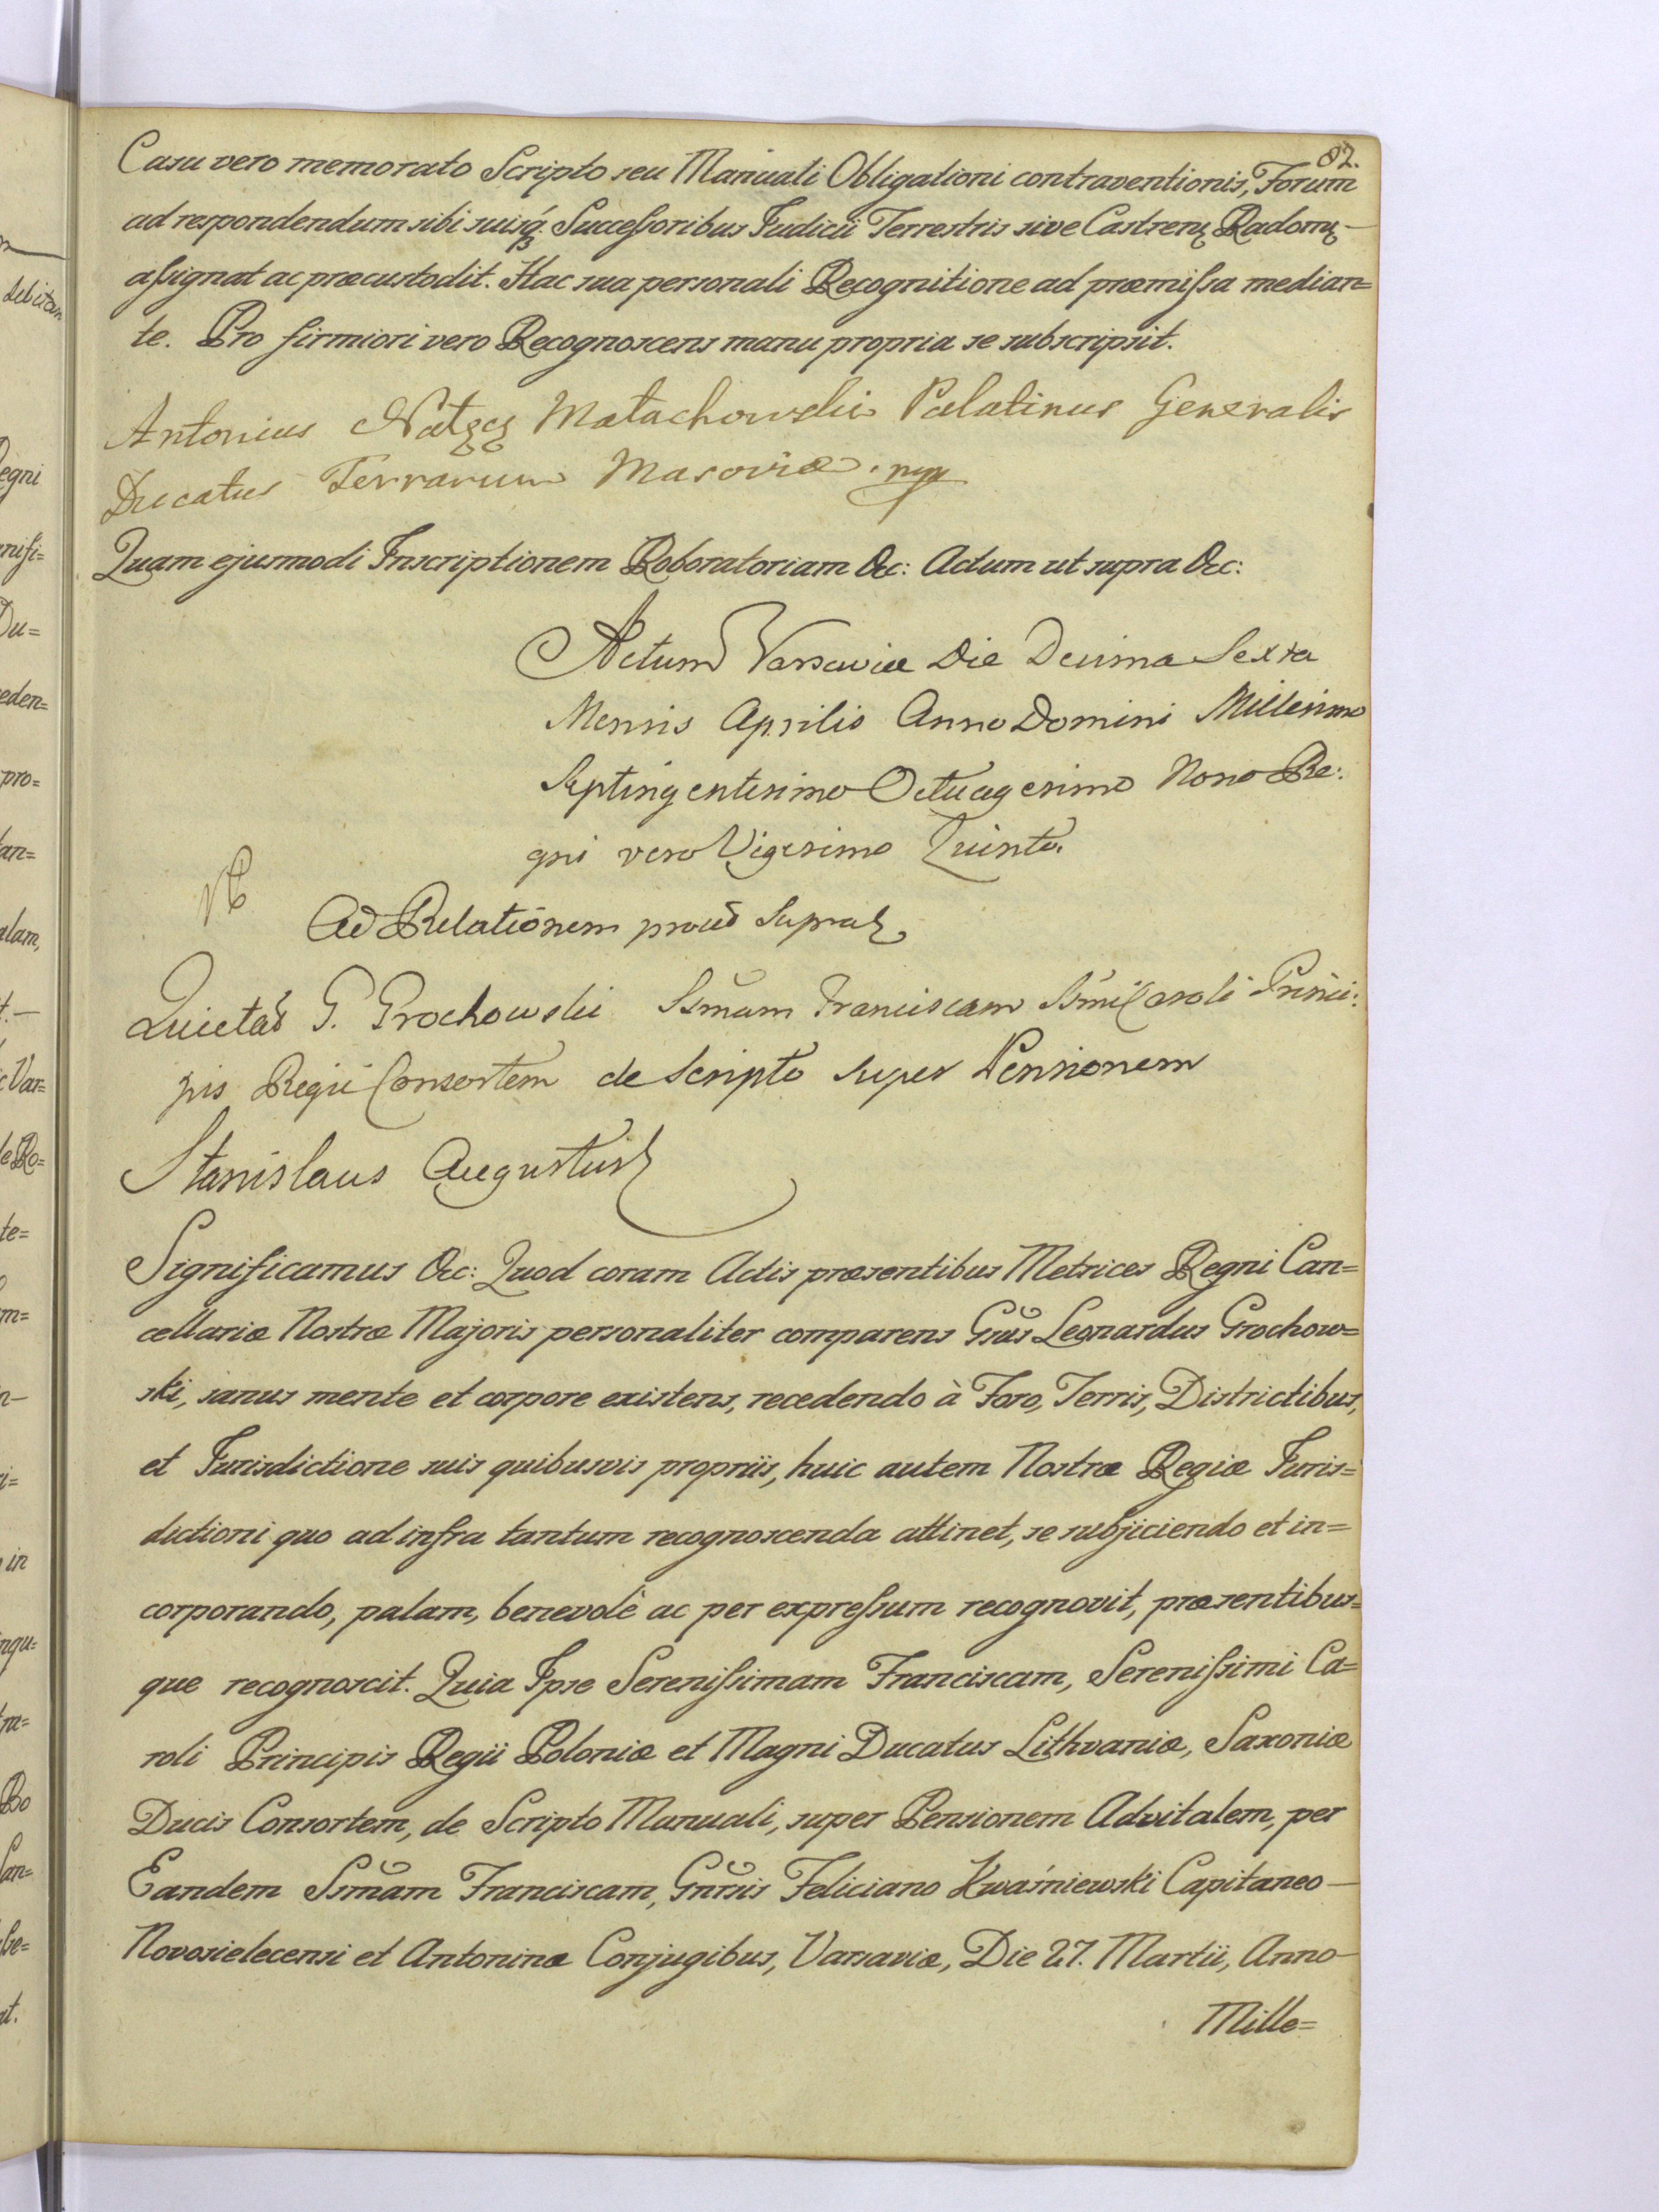 82.
Casu vero memorato Scripto seu Manuali Obligationi contraventionis, Forum
ad respondendum sibi suisq; Successoribus Judicii Terrestris sive Castren; Radom; —
assignat ac præcustodit. Hac sua personali Recognitione ad præmissa median=
te. Pro firmiori vero Recognoscens manu propria se subscripsit.
Antonius Małachowski Palatinus Generalis
Ducatus Terrarum Masoviæ. mpp
Quam ejusmodi Inscriptionem Roboratoriam &c: Actum ut supra &c:
Actum Varsaviæ Die Decima Sexta
Mensis Aprilis Anno Domini Millesimo
Septingentesimo Octuagesimo Nono Re:
gni vero Vigesimo Quinto.
Ad Relationem prout Supra
Quietat G. Grochowski Ssmam Franciscam Ssmi Caroli Princi:
pis Regii Consortem de Scripto super Pensionem
Stanislaus Augustus
Significamus &c: Quod coram Actis præsentibus Metrices Regni Can=
cellariæ Nostræ Majoris personaliter comparens Gsus Leonardus Grochow=
ski, sanus mente et corpore existens, recedendo à Foro, Terris, Districtibus,
et Jurisdictione suis quibusvis propriis, huic autem Nostræ Regiæ Juris=
dictioni quo ad infra tantum recognoscenda attinet, se subjiciendo et in=
corporando, palam, benevolè ac per expressum recognovit, præsentibus=
que recognoscit. Quia Ipse Serenissimam Franciscam, Serenissimi Ca=
roli Principis Regii Poloniæ et Magni Ducatus Lithvaniæ, Saxoniæ
Ducis Consortem, de Scripto Manuali, super Pensionem Advitalem, per
Eandem Ssmam Franciscam, Gnrsis Feliciano Kwaśniewski Capitaneo —
Novosielecensi et Antoninæ Conjugibus, Varsaviæ, Die 27. Martii, Anno —
Mille=